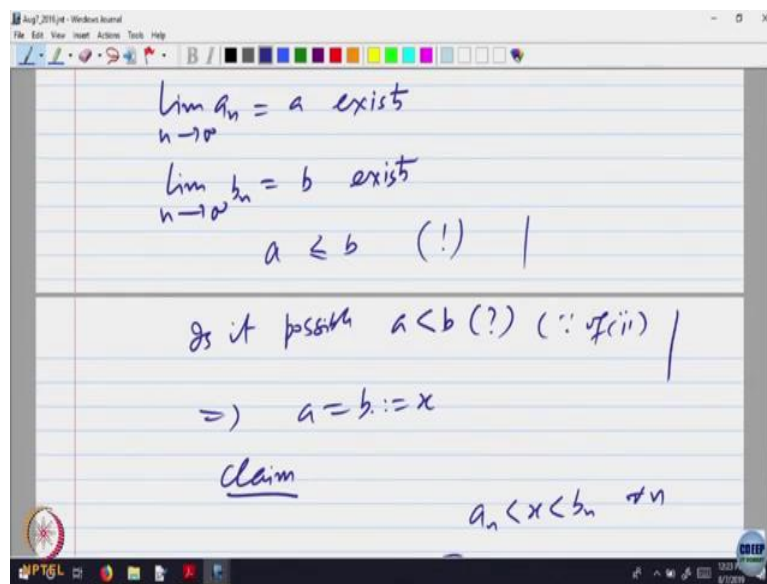 Aug7_2019.jnt - Windows Journal
File Edit View Insert Actions Tools Help
lim aₙ = a exist
n→∞
lim bₙ = b exist
n→∞
a ≤ b (!)
Is it possible a < b (?) (∵ of (ii))
=) a = b := x
Claim
aₙ < x < bₙ ∀n
NPTEL
CDEEP
12:23 PM
8/7/2019